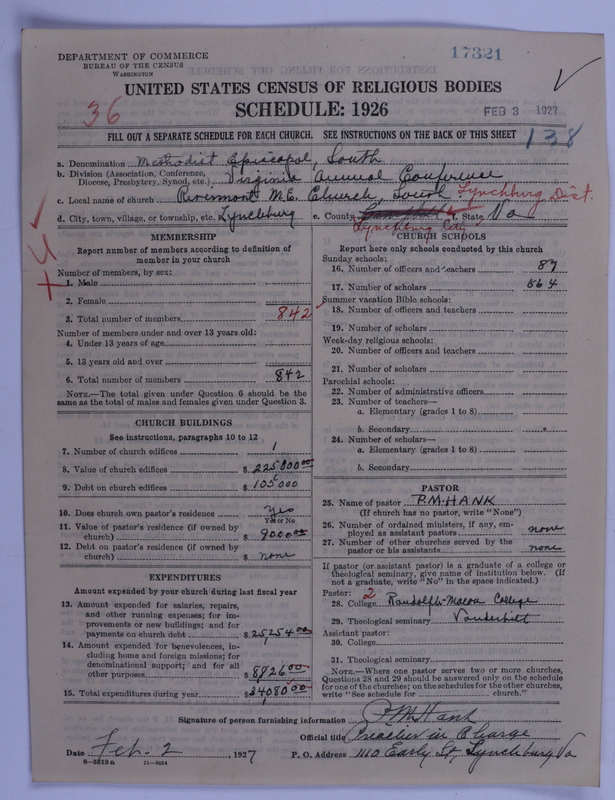 DEPARTMENT OF COMMERCE
BUREAU OF THE CENSUS
WASHINGTON
17321
UNITED STATES CENSUS OF RELIGIOUS BODIES
SCHEDULE: 1926
36
FEB 3 1927
FILL OUT A SEPARATE SCHEDULE FOR EACH CHURCH. SEE INSTRUCTIONS ON THE BACK OF THIS SHEET
138
a. Denomination Methodist Episcopal, South
b. Division (Association, Conference, Diocese, Presbytery, Synod, etc.) Virginia Annual Conference
c. Local name of church Rivermont M.E. Church, South Lynchburg Dist.
d. City, town, village, or township, etc. Lynchburg e. County Campbell f. State Va
Lynchburg City
MEMBERSHIP
Report number of members according to definition of
member in your church
Number of members, by sex:
1. Male
2. Female
3. Total number of members 842
Number of members under and over 13 years old:
4. Under 13 years of age
5. 13 years old and over
6. Total number of members 842
NOTE.—The total given under Question 6 should be the
same as the total of males and females given under Question 3.
CHURCH BUILDINGS
See instructions, paragraphs 10 to 12
7. Number of church edifices 1
8. Value of church edifices $ 225000.00
9. Debt on church edifices $ 105000
10. Does church own pastor's residence yes
Yes or No
11. Value of pastor's residence (if owned by
church) $ 9000.00
12. Debt on pastor's residence (if owned by
church) $ none
EXPENDITURES
Amount expended by your church during last fiscal year
13. Amount expended for salaries, repairs,
and other running expenses; for im-
provements or new buildings; and for
payments on church debt $ 25,254.00
14. Amount expended for benevolences, in-
cluding home and foreign missions; for
denominational support; and for all
other purposes $ 8826.00
15. Total expenditures during year $ 34080.00
CHURCH SCHOOLS
Report here only schools conducted by this church
Sunday schools:
16. Number of officers and teachers 87
17. Number of scholars 564
Summer vacation Bible schools:
18. Number of officers and teachers
19. Number of scholars
Week-day religious schools:
20. Number of officers and teachers
21. Number of scholars
Parochial schools:
22. Number of administrative officers
23. Number of teachers—
a. Elementary (grades 1 to 8)
b. Secondary
24. Number of scholars—
a. Elementary (grades 1 to 8)
b. Secondary
PASTOR
25. Name of pastor P.M.HANK
(If church has no pastor, write "None")
26. Number of ordained ministers, if any, em-
ployed as assistant pastors none
27. Number of other churches served by the
pastor or his assistants none
If pastor (or assistant pastor) is a graduate of a college or
theological seminary, give name of institution below. (If
not a graduate, write "No" in the space indicated.)
Pastor: 2
28. College Randolph-Macon College
29. Theological seminary Vanderbilt
Assistant pastor:
30. College
31. Theological seminary
NOTE.—Where one pastor serves two or more churches,
Questions 28 and 29 should be answered only on the schedule
for one of the churches; on the schedules for the other churches,
write "See schedule for church."
Signature of person furnishing information P.M. Hank
Official title Preacher in Charge
Date Feb. 2, 1927 P. O. Address 1110 Early St, Lynchburg Va
8-5318a 11-3034